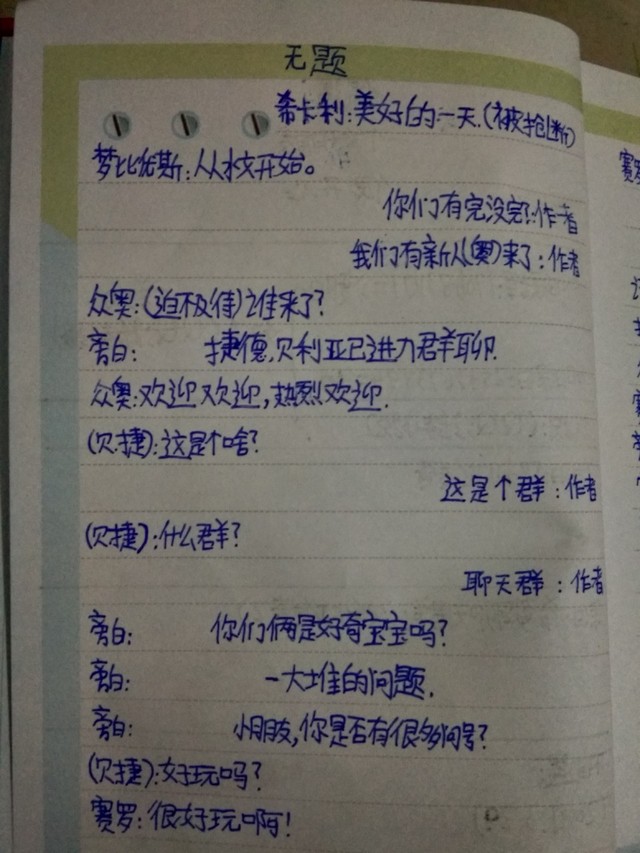 无题
希卡利:美好的一天.(被抢断)
梦比优斯:从水文开始。
你们有完没完?:作者
我们有新人(奥)来了:作者
众奥:(迫不及待)谁来了?
旁白: 捷德,贝利亚已进入群聊.
众奥:欢迎欢迎,热烈欢迎.
(贝.捷):这是个啥?
这是个群:作者
(贝捷):什么群?
聊天群:作者
旁白: 你们俩是好奇宝宝吗?
旁白: 一大堆的问题.
旁白: 小朋友,你是否有很多问号?
(贝捷):好玩吗?
赛罗:很好玩啊!
赛罗